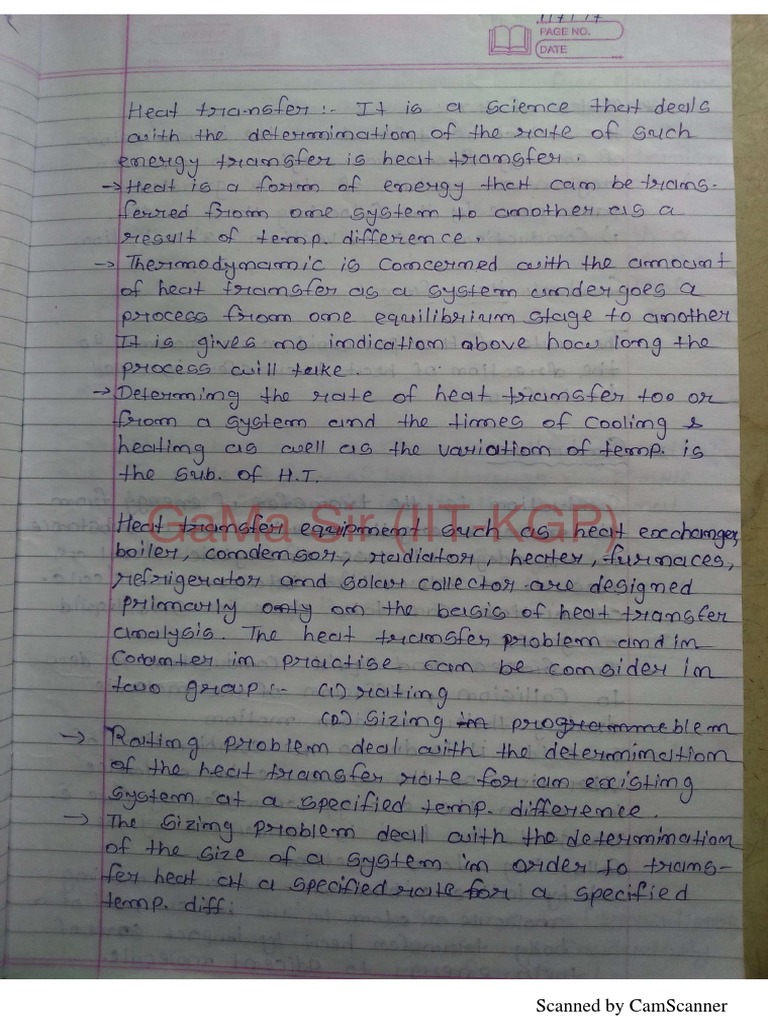 PAGE NO.
DATE
Heat transfer :- It is a science that deals
with the determination of the rate of such
energy transfer is heat transfer.
→ Heat is a form of energy that can be trans-
ferred from one system to another as a
result of temp. difference.
→ Thermodynamic is concerned with the amount
of heat transfer as a system undergoes a
process from one equilibrium stage to another
It is gives no indication above how long the
process will take.
→ Determing the rate of heat transfer too or
from a system and the times of cooling &
heating as well as the variation of temp. is
the sub. of H.T.
GaMa Sir (IIT-KGP)
Heat transfer equipment such as heat exchanger,
boiler, condensor, radiator, heater, furnaces,
refrigerator and solar collector are designed
primarly only on the basis of heat transfer
analysis. The heat transfer problem and in
Counter in practise can be consider in
two group :- (1) rating
(2) sizing in problem
→ Rating problem deal with the determination
of the heat transfer rate for an existing
system at a specified temp. difference.
→ The sizing problem deal with the determination
of the size of a system in order to trans-
fer heat at a specified rate for a specified
temp. diff.
Scanned by CamScanner